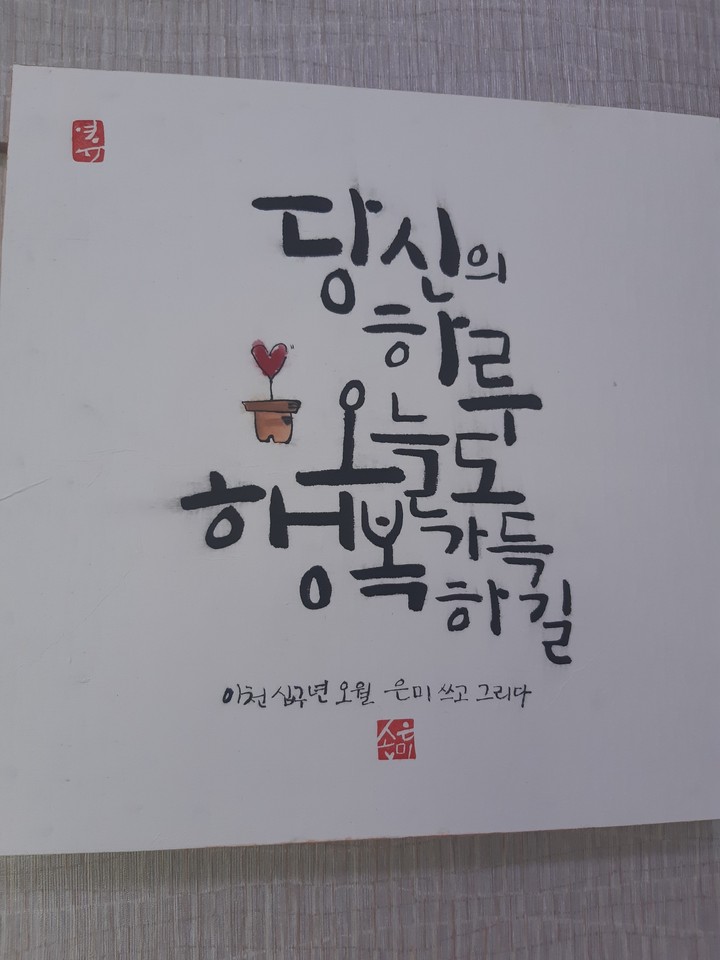 당신의
하루
오늘도
행복 가득
하길
이천 십구년 오월 은미 쓰고 그리다
송은미